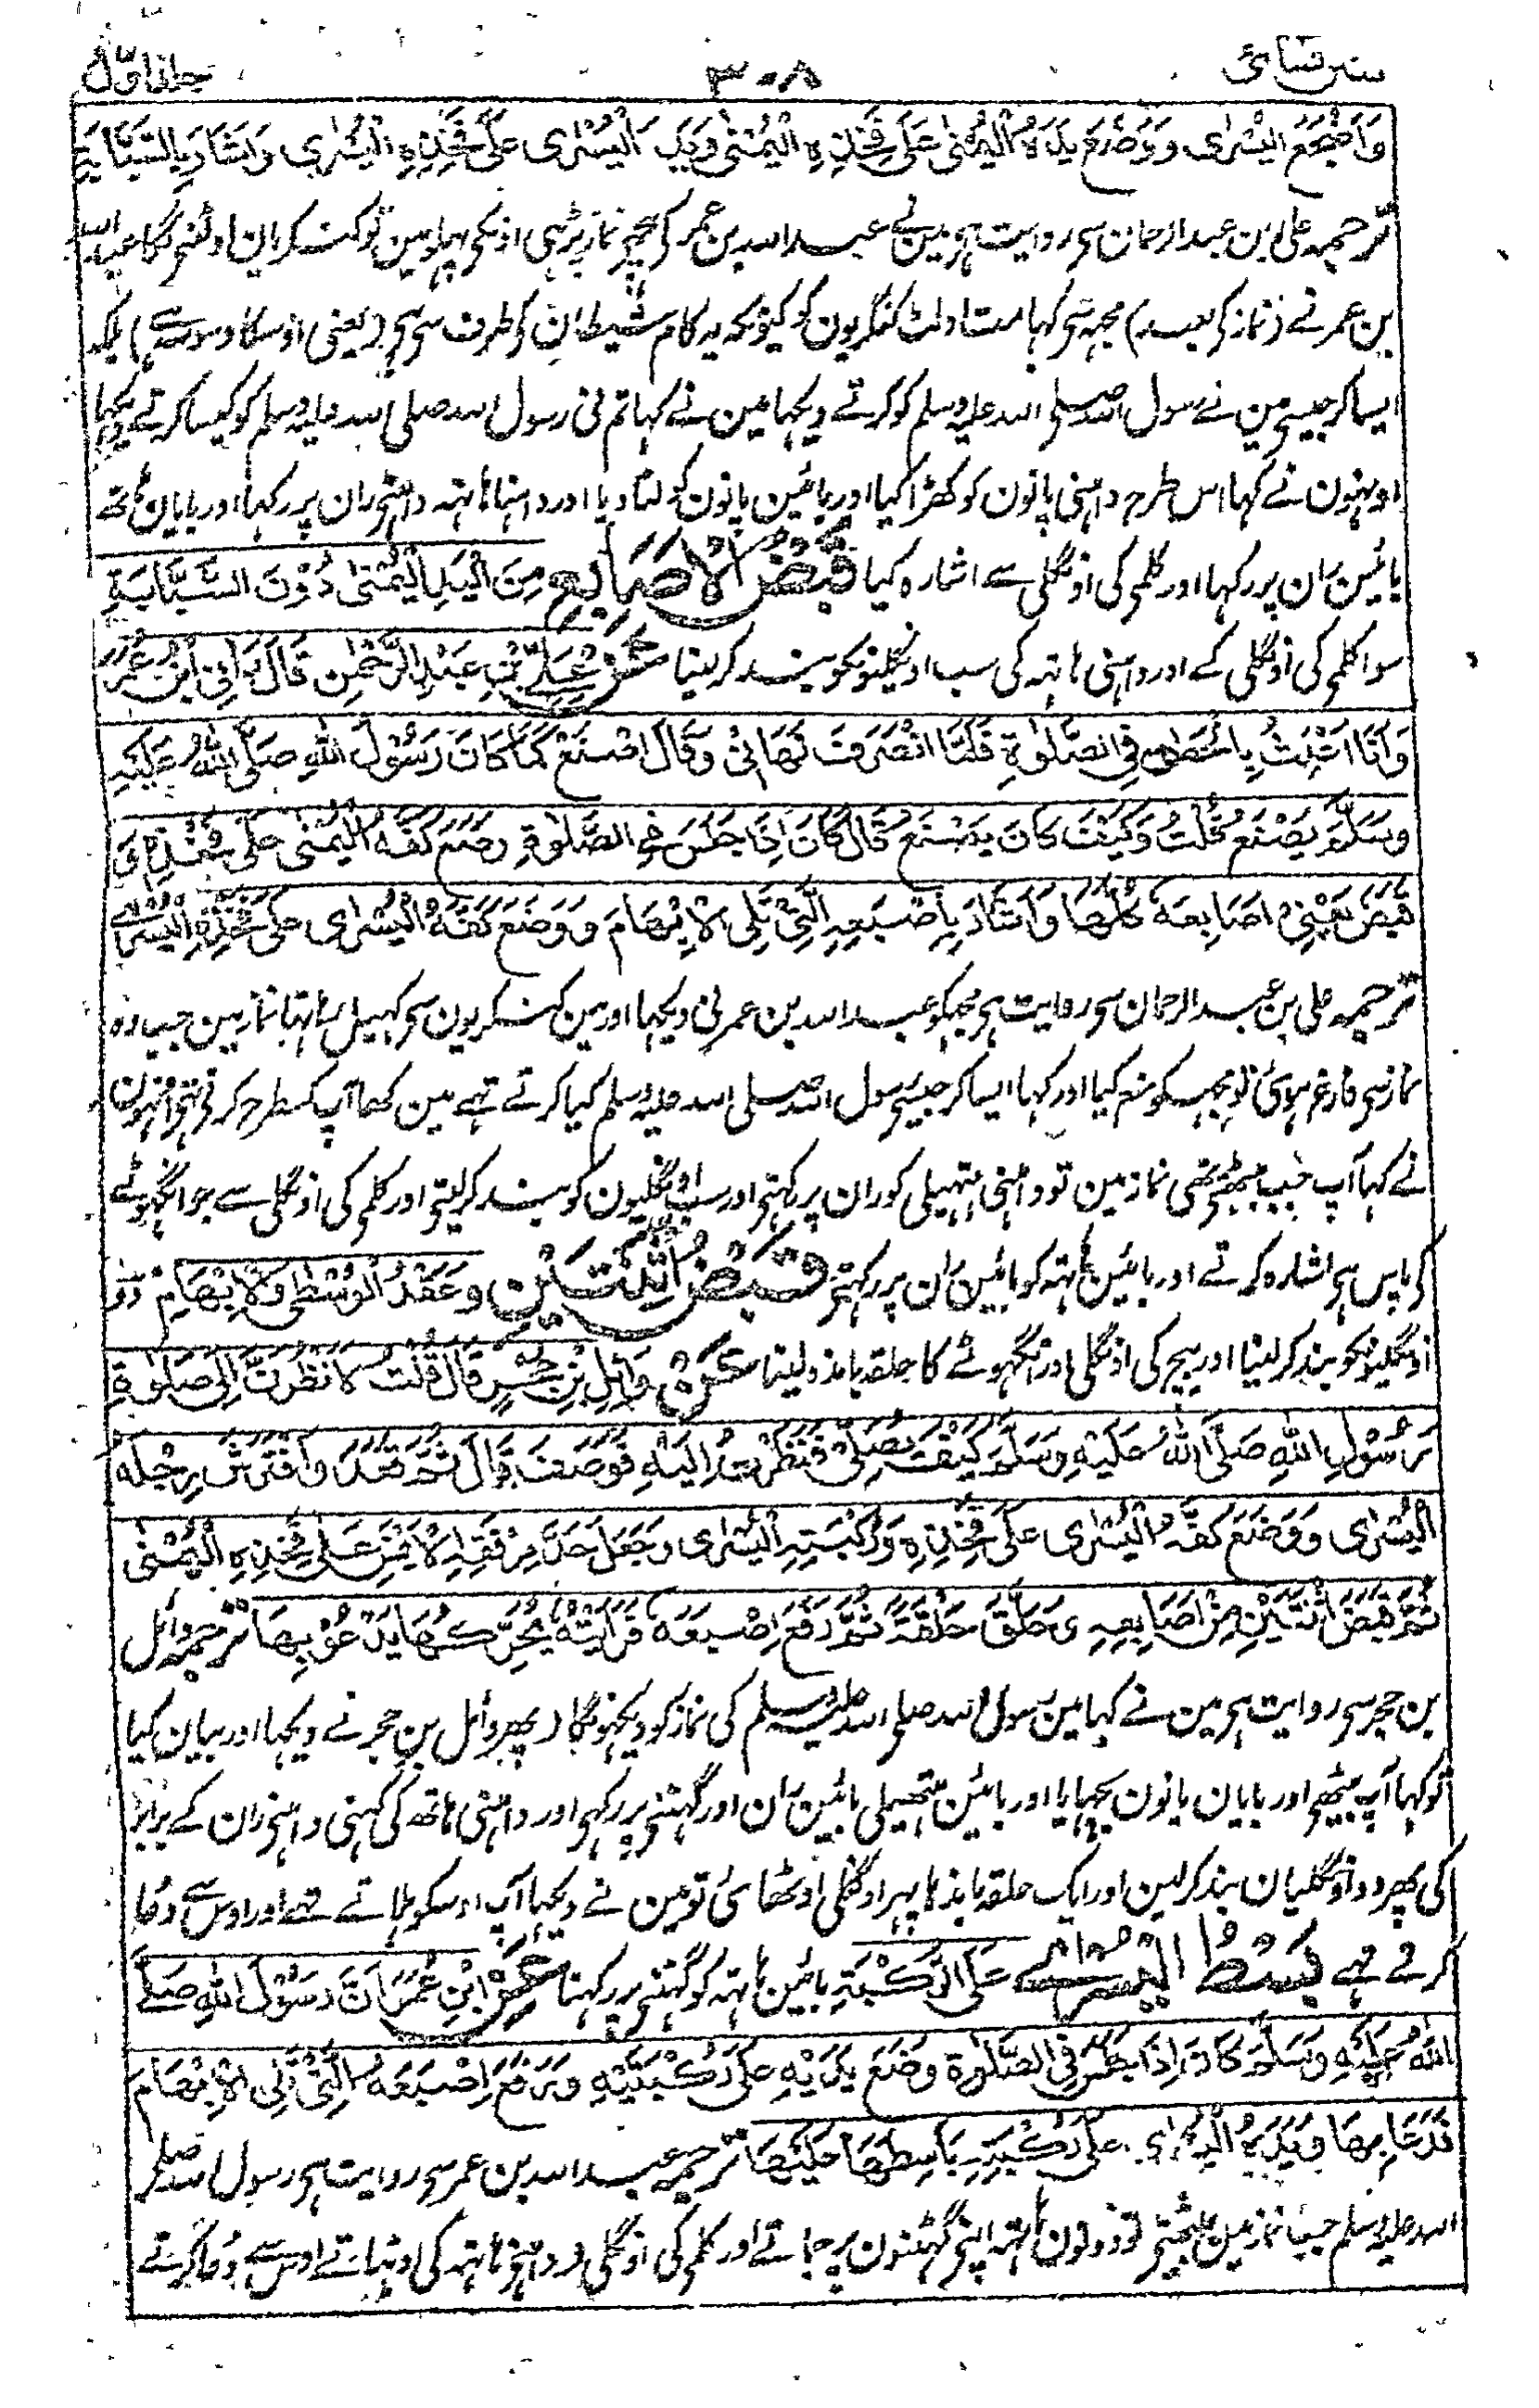 سنن نسائی ۳۰۸ جلد اوّل
وَاَضْجَعَ الْیُسْرٰی وَوَضَعَ یَدَہُ الْیُمْنٰی عَلٰی فَخِذِہِ الْیُمْنٰی وَیَدَہُ الْیُسْرٰی عَلٰی فَخِذِہِ الْیُسْرٰی وَاَشَارَ بِالسَّبَّابَۃِ
ترجمہ علی ابن عبدالرحمان سی روایت ہی مین نے عبداللہ بن عمر کی پیچہی نماز پڑہی اونکی پہلو مین تو کنکریان اولٹنی لگا عبداللہ
بن عمر نے (نماز کی بعد) مجہہ سی کہا مت اولٹ کنکریون کو کیونکہ یہ کام شیطان کی طرف سی ہی (یعنی اوسکا وسوسہ ہی) بلکہ
ایسا کر جیسی مین نے رسول اللہ صلی اللہ علیہ وسلم کو کرتے دیکہا مین نے کہا تم نی رسول اللہ صلی اللہ علیہ وسلم کو کیسا کرتے دیکہا
اونہون نے کہا اس طرح داہنی پانون کو کھڑا کیا اور بائین پانون کو لٹا دیا اور داہنا ہاتہہ داہنی ران پر رکہا اور بایان ہاتھ
بائین ران پر رکہا اور کلمی کی اونگلی سے اشارہ کیا قَبْضُ الْاَصَابِعِ مِنَ الْیَدِ الْیُمْنٰی دُوْنَ السَّبَّابَۃِ
سوا کلمی کی اونگلی کے اور داہنی ہاتہہ کی سب اونگلیونکو بند کر لینا عَنْ عَلِیِّ بْنِ عَبْدِالرَّحْمٰنِ قَالَ رَاٰنِی ابْنُ عُمَرَ
وَاَنَا اَعْبَثُ بِالْحَصٰی فِی الصَّلٰوۃِ فَلَمَّا انْصَرَفَ نَہَانِیْ وَقَالَ اصْنَعْ کَمَا کَانَ رَسُوْلُ اللّٰہِ صَلَّی اللّٰہُ عَلَیْہِ
وَسَلَّمَ یَصْنَعُ قُلْتُ وَکَیْفَ کَانَ یَصْنَعُ قَالَ کَانَ اِذَا جَلَسَ فِی الصَّلٰوۃِ وَضَعَ کَفَّہُ الْیُمْنٰی عَلٰی فَخِذِہٖ وَ
قَبَضَ یَعْنِیْ اَصَابِعَہٗ کُلَّہَا وَاَشَارَ بِاِصْبَعِہِ الَّتِیْ تَلِی الْاِبْہَامَ وَوَضَعَ کَفَّہُ الْیُسْرٰی عَلٰی فَخِذِہِ الْیُسْرٰی
ترجمہ علی بن عبدالرحمان سی روایت ہی مجہکو عبداللہ بن عمر نی دیکہا اور مین کنکریون سی کہیل رہا تہا نماز مین جب وہ
نماز سی فارغ ہوئی تو مجہکو منع کیا اور کہا ایسا کر جیسی رسول اللہ صلی اللہ علیہ وسلم کیا کرتے تہے مین کہا آپ کسطرح کرتی تہی اونہون
نے کہا آپ جب بیٹھتی تھی نماز مین تو داہنی ہتہیلی کو ران پر رکہتی اور سب اونگلیون کو بند کر لیتی اور کلمی کی اونگلی سے جو انگہوٹے
کی پاس ہی اشارہ کرتے اور بائین ہاتہہ کو بائین ران پر رکہتی قَبْضُ الثِّنْتَیْنِ وَعَقْدُ الْوُسْطٰی وَالْاِبْہَامِ دو
اونگلیونکو بند کر لینا اور بیچ کی اونگلی اور انگہوٹے کا حلقہ باندہ لینا عَنْ وَائِلِ بْنِ حُجْرٍ قَالَ قُلْتُ لَاَنْظُرَنَّ اِلٰی صَلٰوۃِ
رَسُوْلِ اللّٰہِ صَلَّی اللّٰہُ عَلَیْہِ وَسَلَّمَ کَیْفَ یُصَلِّیْ فَنَظَرْتُ اِلَیْہِ فَوَصَفَ قَالَ ثُمَّ قَعَدَ وَافْتَرَشَ رِجْلَہُ
الْیُسْرٰی وَوَضَعَ کَفَّہُ الْیُسْرٰی عَلٰی فَخِذِہٖ وَرُکْبَتِہِ الْیُسْرٰی وَجَعَلَ حَدَّ مِرْفَقِہِ الْاَیْمَنِ عَلٰی فَخِذِہِ الْیُمْنٰی
ثُمَّ قَبَضَ اثْنَتَیْنِ مِنْ اَصَابِعِہٖ وَحَلَّقَ حَلْقَۃً ثُمَّ رَفَعَ اِصْبَعَہٗ فَرَاَیْتُہٗ یُحَرِّکُہَا یَدْعُوْ بِہَا ترجمہ وائل
بن حجر سی روایت ہی مین نے کہا مین رسول اللہ صلی اللہ علیہ وسلم کی نماز کو دیکہونگا (پھر وائل بن حجر نے دیکہا اور بیان کیا
تو کہا آپ بیٹھی اور بایان پانون بچہایا اور بائین ہتھیلی بائین ران اور گہٹنی پر رکہی اور داہنی ہاتھ کی کہنی داہنی ران کے برابر
کی پھر دو اونگلیان بند کر لین اور ایک حلقہ باندہا پہر اونگلی اوٹھائی تو مین نے دیکہا آپ اوسکو ہلاتے تہے اور اوس سے دعا
کرتے تہے بَسْطُ الْیُسْرٰی عَلَی الرُّکْبَۃِ بائین ہاتہہ کو گہٹنی پر رکہنا عَنِ ابْنِ عُمَرَ اَنَّ رَسُوْلَ اللّٰہِ صَلَّی
اللّٰہُ عَلَیْہِ وَسَلَّمَ کَانَ اِذَا جَلَسَ فِی الصَّلٰوۃِ وَضَعَ یَدَیْہِ عَلٰی رُکْبَتَیْہِ وَرَفَعَ اِصْبَعَہُ الَّتِیْ تَلِی الْاِبْہَامَ
فَدَعَا بِہَا وَیَدُہُ الْیُسْرٰی عَلٰی رُکْبَتِہٖ بَاسِطَہَا عَلَیْہَا ترجمہ عبداللہ بن عمر سی روایت ہی رسول اللہ صلی
اللہ علیہ وسلم جب نماز مین بیٹھتی تو دونون ہاتہہ اپنی گہٹنون پر جماتے اور کلمی کی اونگلی داہنی ہاتہہ کی اوٹہاتے اوس سے دعا کرتے